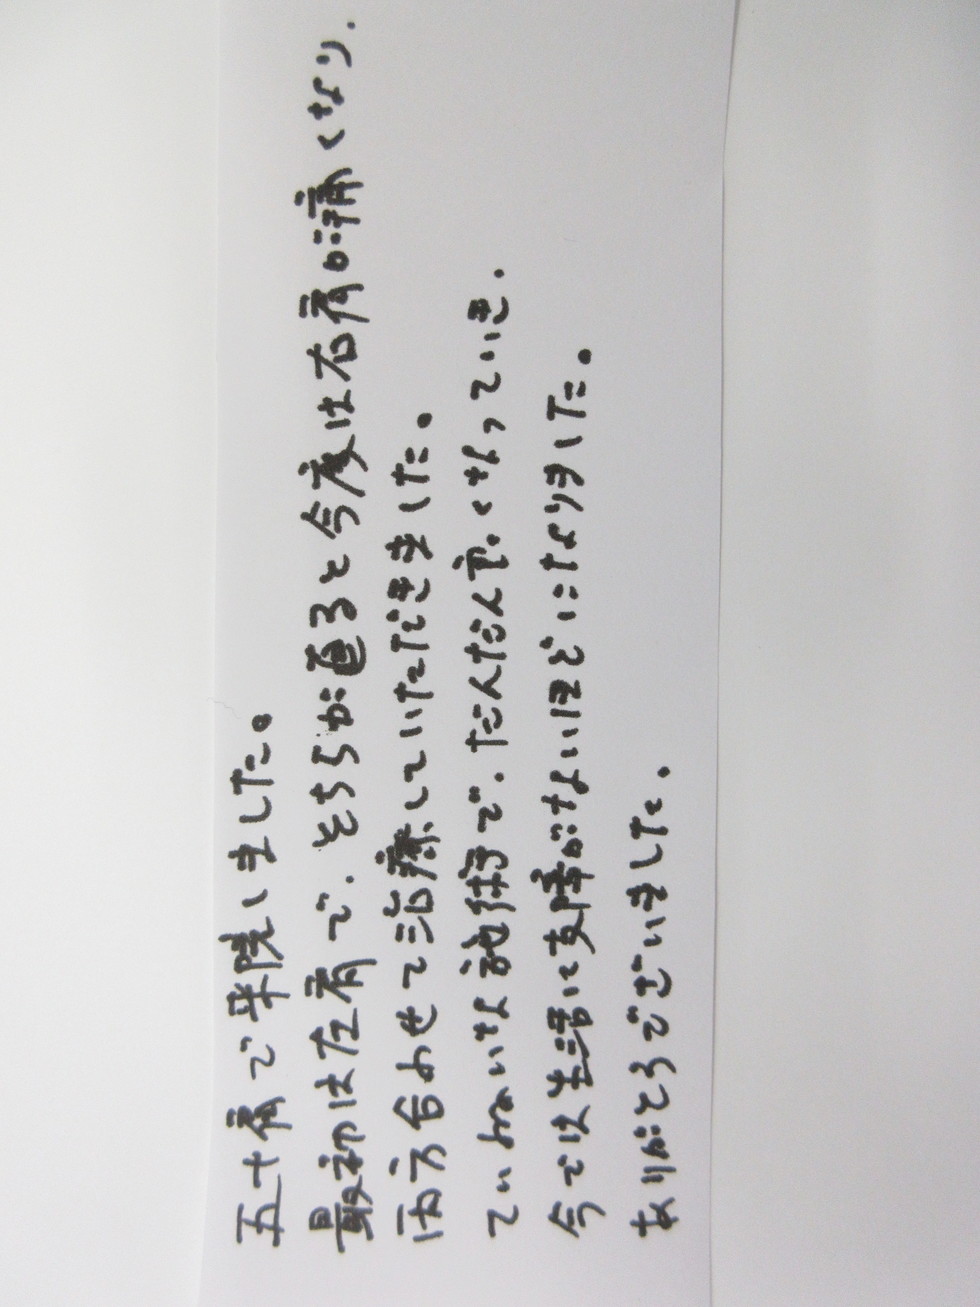 五十肩で来院しました。
最初は左肩で、そちらが直ると今度は右肩が痛くなり、
両方合わせて治療していただきました。
ていねいな施術で、だんだん平くなっていき、
今では生活に支障がないほどになりました。
ありがとうございました。